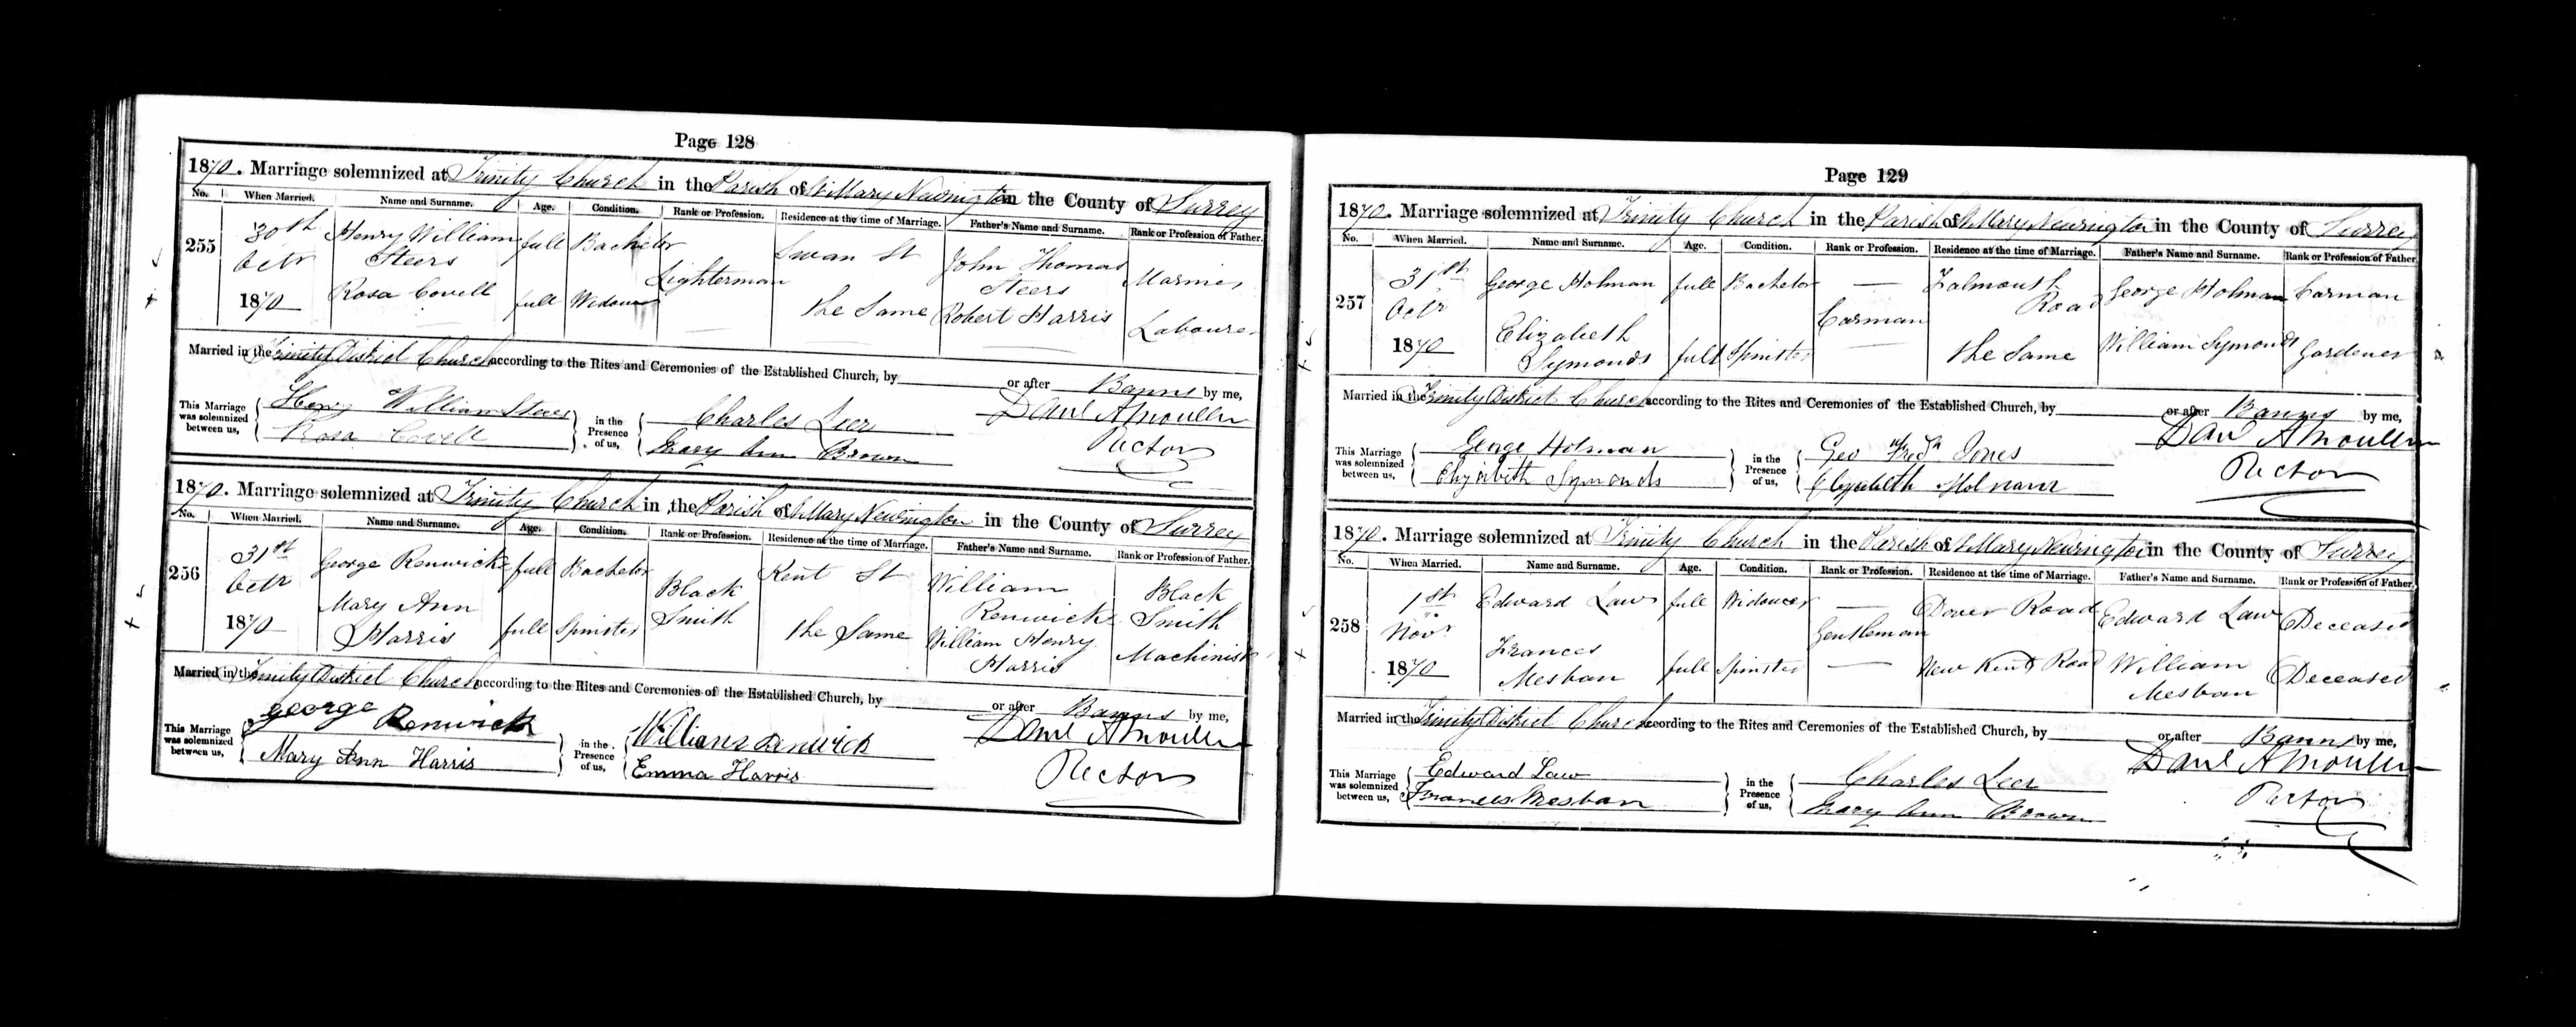 Page 128
1870. Marriage solemnized at Trinity Church in the Parish of St Mary Newington in the County of Surrey
No. When Married. Name and Surname. Age. Condition. Rank or Profession. Residence at the time of Marriage. Father's Name and Surname. Rank or Profession of Father.
255 30th Octr 1870 Henry William Steers full Bachelor Lighterman Swan St John Thomas Steers Mariner
Rosa Covell full Widow the Same Robert Harris Labourer
Married in the Trinity District Church according to the Rites and Ceremonies of the Established Church, by or after Banns by me,
This Marriage was solemnized between us, Henry William Steers in the Presence of us, Charles Leer
Rosa Covell Mary Ann Brown Rector
1870. Marriage solemnized at Trinity Church in the Parish of St Mary Newington in the County of Surrey
No. When Married. Name and Surname. Age. Condition. Rank or Profession. Residence at the time of Marriage. Father's Name and Surname. Rank or Profession of Father.
256 31st Octr 1870 George Renwick full Bachelor Black Smith Kent St William Renwick Black Smith
Mary Ann Harris full Spinster the Same William Henry Harris Machinist
Married in the Trinity District Church according to the Rites and Ceremonies of the Established Church, by or after Banns by me,
This Marriage was solemnized between us, George Renwick in the Presence of us, William Renwick
Mary Ann Harris Emma Harris Rector
Page 129
1870. Marriage solemnized at Trinity Church in the Parish of St Mary Newington in the County of Surrey
No. When Married. Name and Surname. Age. Condition. Rank or Profession. Residence at the time of Marriage. Father's Name and Surname. Rank or Profession of Father.
257 31st Octr 1870 George Holman full Bachelor Carman Falmouth Road George Holman Carman
Elizabeth Symonds full Spinster the Same William Symonds Gardener
Married in the Trinity District Church according to the Rites and Ceremonies of the Established Church, by or after Banns by me,
This Marriage was solemnized between us, George Holman in the Presence of us, Geo Fredk Jones
Elizabeth Symonds Elizabeth Holman Rector
1870. Marriage solemnized at Trinity Church in the Parish of St Mary Newington in the County of Surrey
No. When Married. Name and Surname. Age. Condition. Rank or Profession. Residence at the time of Marriage. Father's Name and Surname. Rank or Profession of Father.
258 1st Novr 1870 Edward Law full Widower Gentleman Dover Road Edward Law Deceased
Frances Mesban full Spinster New Kent Road William Mesban Deceased
Married in the Trinity District Church according to the Rites and Ceremonies of the Established Church, by or after Banns by me,
This Marriage was solemnized between us, Edward Law in the Presence of us, Charles Leer
Frances Mesban Mary Ann Brown Rector